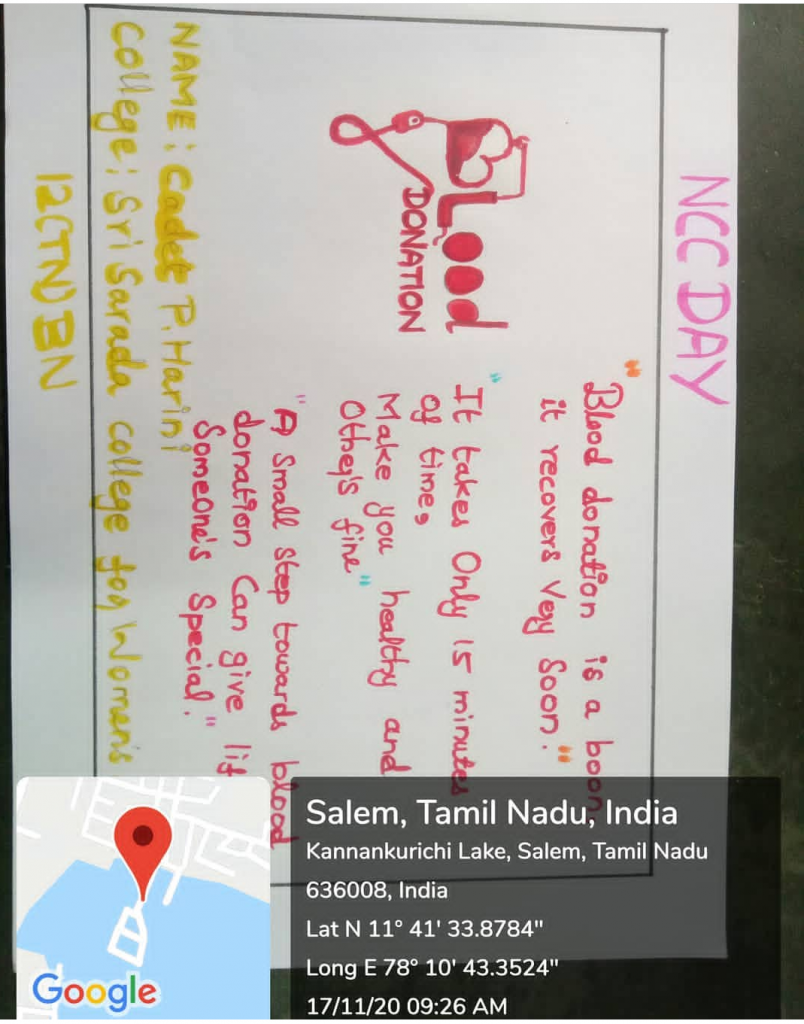 NCC DAY
Blood
DONATION
"Blood donation is a boon,
it recovers Very Soon."
"It takes Only 15 minutes
of time,
Make you healthy and
Other's fine"
"A Small Step towards blood
donation Can give lif
Someone's Special."
NAME: Cadet P. Harini
College: Sri Sarada college for Women's
12(TN) BN
Salem, Tamil Nadu, India
Kannankurichi Lake, Salem, Tamil Nadu
636008, India
Lat N 11° 41' 33.8784"
Long E 78° 10' 43.3524"
17/11/20 09:26 AM
Google